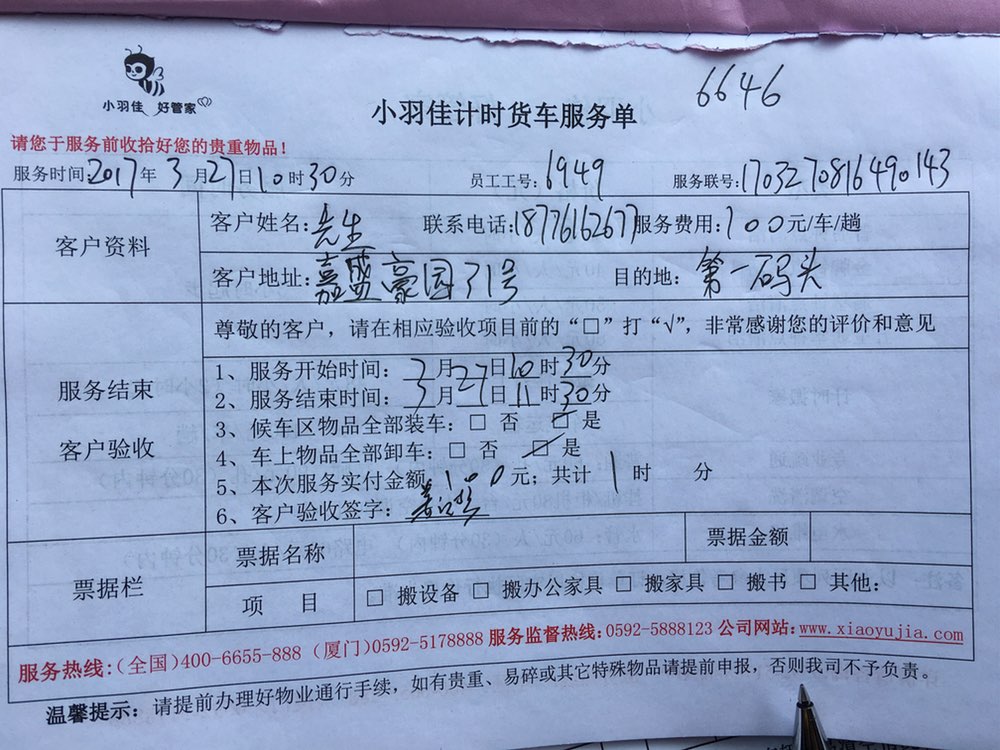 6646
小羽佳 好管家
小羽佳计时货车服务单
请您于服务前收拾好您的贵重物品！
服务时间:2017年3月27日10时30分 员工工号:6949 服务联号:1703270816490143
客户资料
客户姓名:先生 联系电话:18776162677服务费用:100元/车/趟
客户地址:嘉盛豪园31号 目的地:第一码头
服务结束
客户验收
尊敬的客户，请在相应验收项目前的“□”打“√”，非常感谢您的评价和意见
1、服务开始时间：3月27日10时30分
2、服务结束时间：3月27日11时30分
3、候车区物品全部装车：□ 否 ☑ 是
4、车上物品全部卸车：□ 否 ☑ 是
5、本次服务实付金额:100元；共计1时 分
6、客户验收签字：
票据栏
票据名称 票据金额
项 目 □ 搬设备 □ 搬办公家具 □ 搬家具 □ 搬书 □ 其他:
服务热线:(全国)400-6655-888 (厦门)0592-5178888 服务监督热线:0592-5888123 公司网站:www.xiaoyujia.com
温馨提示：请提前办理好物业通行手续，如有贵重、易碎或其它特殊物品请提前申报，否则我司不予负责。